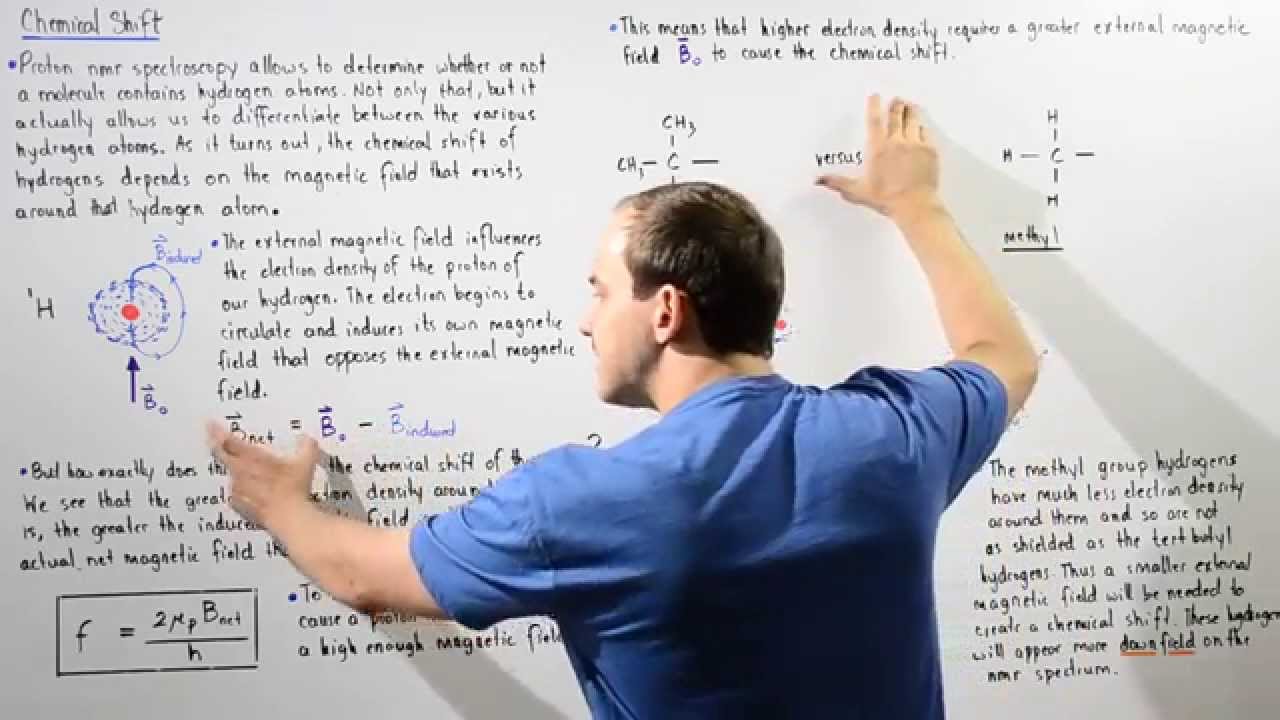 Chemical Shift
• Proton nmr spectroscopy allows to determine whether or not
a molecule contains hydrogen atoms. Not only that, but it
actually allows us to differentiate between the various
hydrogen atoms. As it turns out, the chemical shift of
hydrogens depends on the magnetic field that exists
around that hydrogen atom.
¹H
B⃗induced
B⃗₀
• The external magnetic field influences
the electron density of the proton of
our hydrogen. The electron begins to
circulate and induces its own magnetic
field that opposes the external magnetic
field.
B⃗net = B⃗₀ - B⃗induced
• But how exactly does the chemical shift of
We see that the density
is, the greater the field
actual net magnetic field
f = 2μp Bnet / h
• To
cause a proton
a high enough magnetic field
• This means that higher electron density requires a greater external magnetic
field B⃗₀ to cause the chemical shift.
CH₃
CH₃ — C —
versus
H
H — C —
H
methyl
?
The methyl group hydrogens
have much less electron density
around them and so are not
as shielded as the tert butyl
hydrogens. Thus a smaller external
magnetic field will be needed to
create a chemical shift. These
will appear more downfield on the
nmr spectrum.